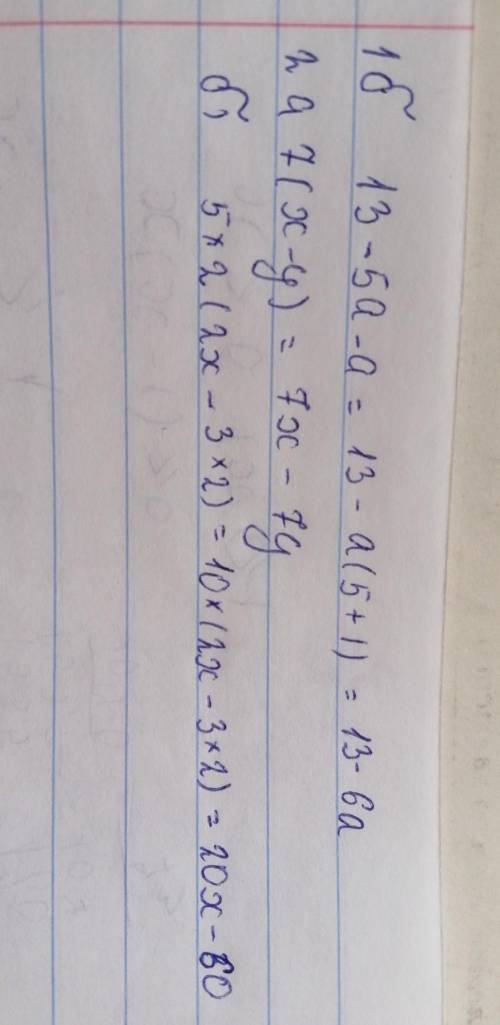 1б 13-5a-a=13-a(5+1)=13-6a
2a 7(x-y)=7x-7y
б) 5×2(2x-3×2)=10×(2x-3×2)=20x-60